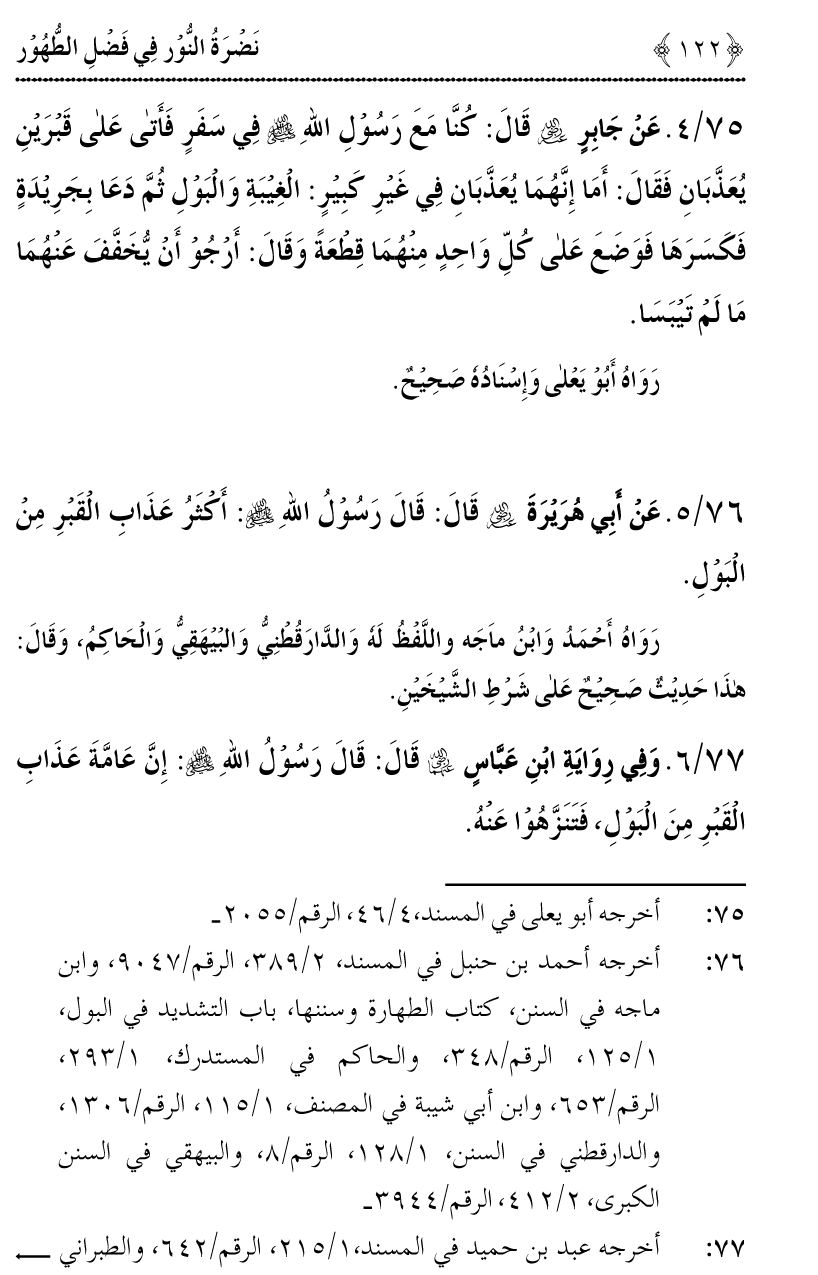 ﴿١٢٢﴾ نَضْرَةُ النُّوْرِ فِي فَضْلِ الطُّهُوْرِ
٤/٧٥. عَنْ جَابِرٍ ﷺ قَالَ: كُنَّا مَعَ رَسُوْلِ اللهِ ﷺ فِي سَفَرٍ فَأَتٰى عَلٰى قَبْرَيْنِ
يُعَذَّبَانِ فَقَالَ: أَمَا إِنَّهُمَا يُعَذَّبَانِ فِي غَيْرِ كَبِيْرٍ: الْغِيْبَةِ وَالْبَوْلِ ثُمَّ دَعَا بِجَرِيْدَةٍ
فَكَسَرَهَا فَوَضَعَ عَلٰى كُلِّ وَاحِدٍ مِنْهُمَا قِطْعَةً وَقَالَ: أَرْجُوْ أَنْ يُّخَفَّفَ عَنْهُمَا
مَا لَمْ تَيْبَسَا.
رَوَاهُ أَبُوْ يَعْلٰى وَإِسْنَادُهٗ صَحِيْحٌ.
٥/٧٦. عَنْ أَبِي هُرَيْرَةَ رضي الله عنه قَالَ: قَالَ رَسُوْلُ اللهِ ﷺ: أَكْثَرُ عَذَابِ الْقَبْرِ مِنْ
الْبَوْلِ.
رَوَاهُ أَحْمَدُ وَابْنُ مَاجَه واللَّفْظُ لَهٗ وَالدَّارَقُطْنِيُّ وَالْبَيْهَقِيُّ وَالْحَاكِمُ، وَقَالَ:
هٰذَا حَدِيْثٌ صَحِيْحٌ عَلٰى شَرْطِ الشَّيْخَيْنِ.
٦/٧٧. وَفِي رِوَايَةِ ابْنِ عَبَّاسٍ رضي الله عنهما قَالَ: قَالَ رَسُوْلُ اللهِ ﷺ: إِنَّ عَامَّةَ عَذَابِ
الْقَبْرِ مِنَ الْبَوْلِ، فَتَنَزَّهُوْا عَنْهُ.
٧٥: أخرجه أبو يعلى في المسند، ٤/٤٦، الرقم/٢٠٥٥ـ
٧٦: أخرجه أحمد بن حنبل في المسند، ٢/٣٨٩، الرقم/٩٠٤٧، وابن
ماجه في السنن، كتاب الطهارة وسننها، باب التشديد في البول،
١/١٢٥، الرقم/٣٤٨، والحاكم في المستدرك، ١/٢٩٣،
الرقم/٦٥٣، وابن أبي شيبة في المصنف، ١/١١٥، الرقم/١٣٠٦،
والدارقطني في السنن، ١/١٢٨، الرقم/٨، والبيهقي في السنن
الكبرى، ٢/٤١٢، الرقم/٣٩٤٤ـ
٧٧: أخرجه عبد بن حميد في المسند، ١/٢١٥، الرقم/٦٤٢، والطبراني